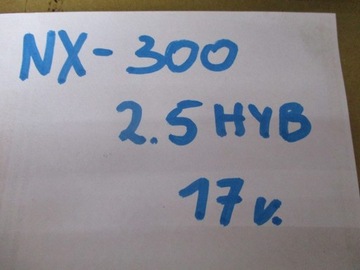 NX-300
2.5 HYB
17v.